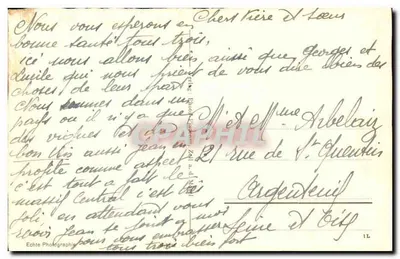 Chers Frère et Sœur
Nous vous espérons en
bonne santé tous trois,
ici nous allons bien ainsi que Georges et
qui nous prient de vous dire bien des
choses de leur part.
Nous sommes dans un
pays où il n'y a que
des vignes et du
bon vin aussi Jean en
profite comme aspect
c'est tout à fait le
massif central c'est très
joli en attendant vous
revoir Jean se joint à moi
pour vous embrasser
tous trois bien fort
M. et Mme Arbelaiz
21 rue de St Quentin
Argenteuil
Seine et Oise